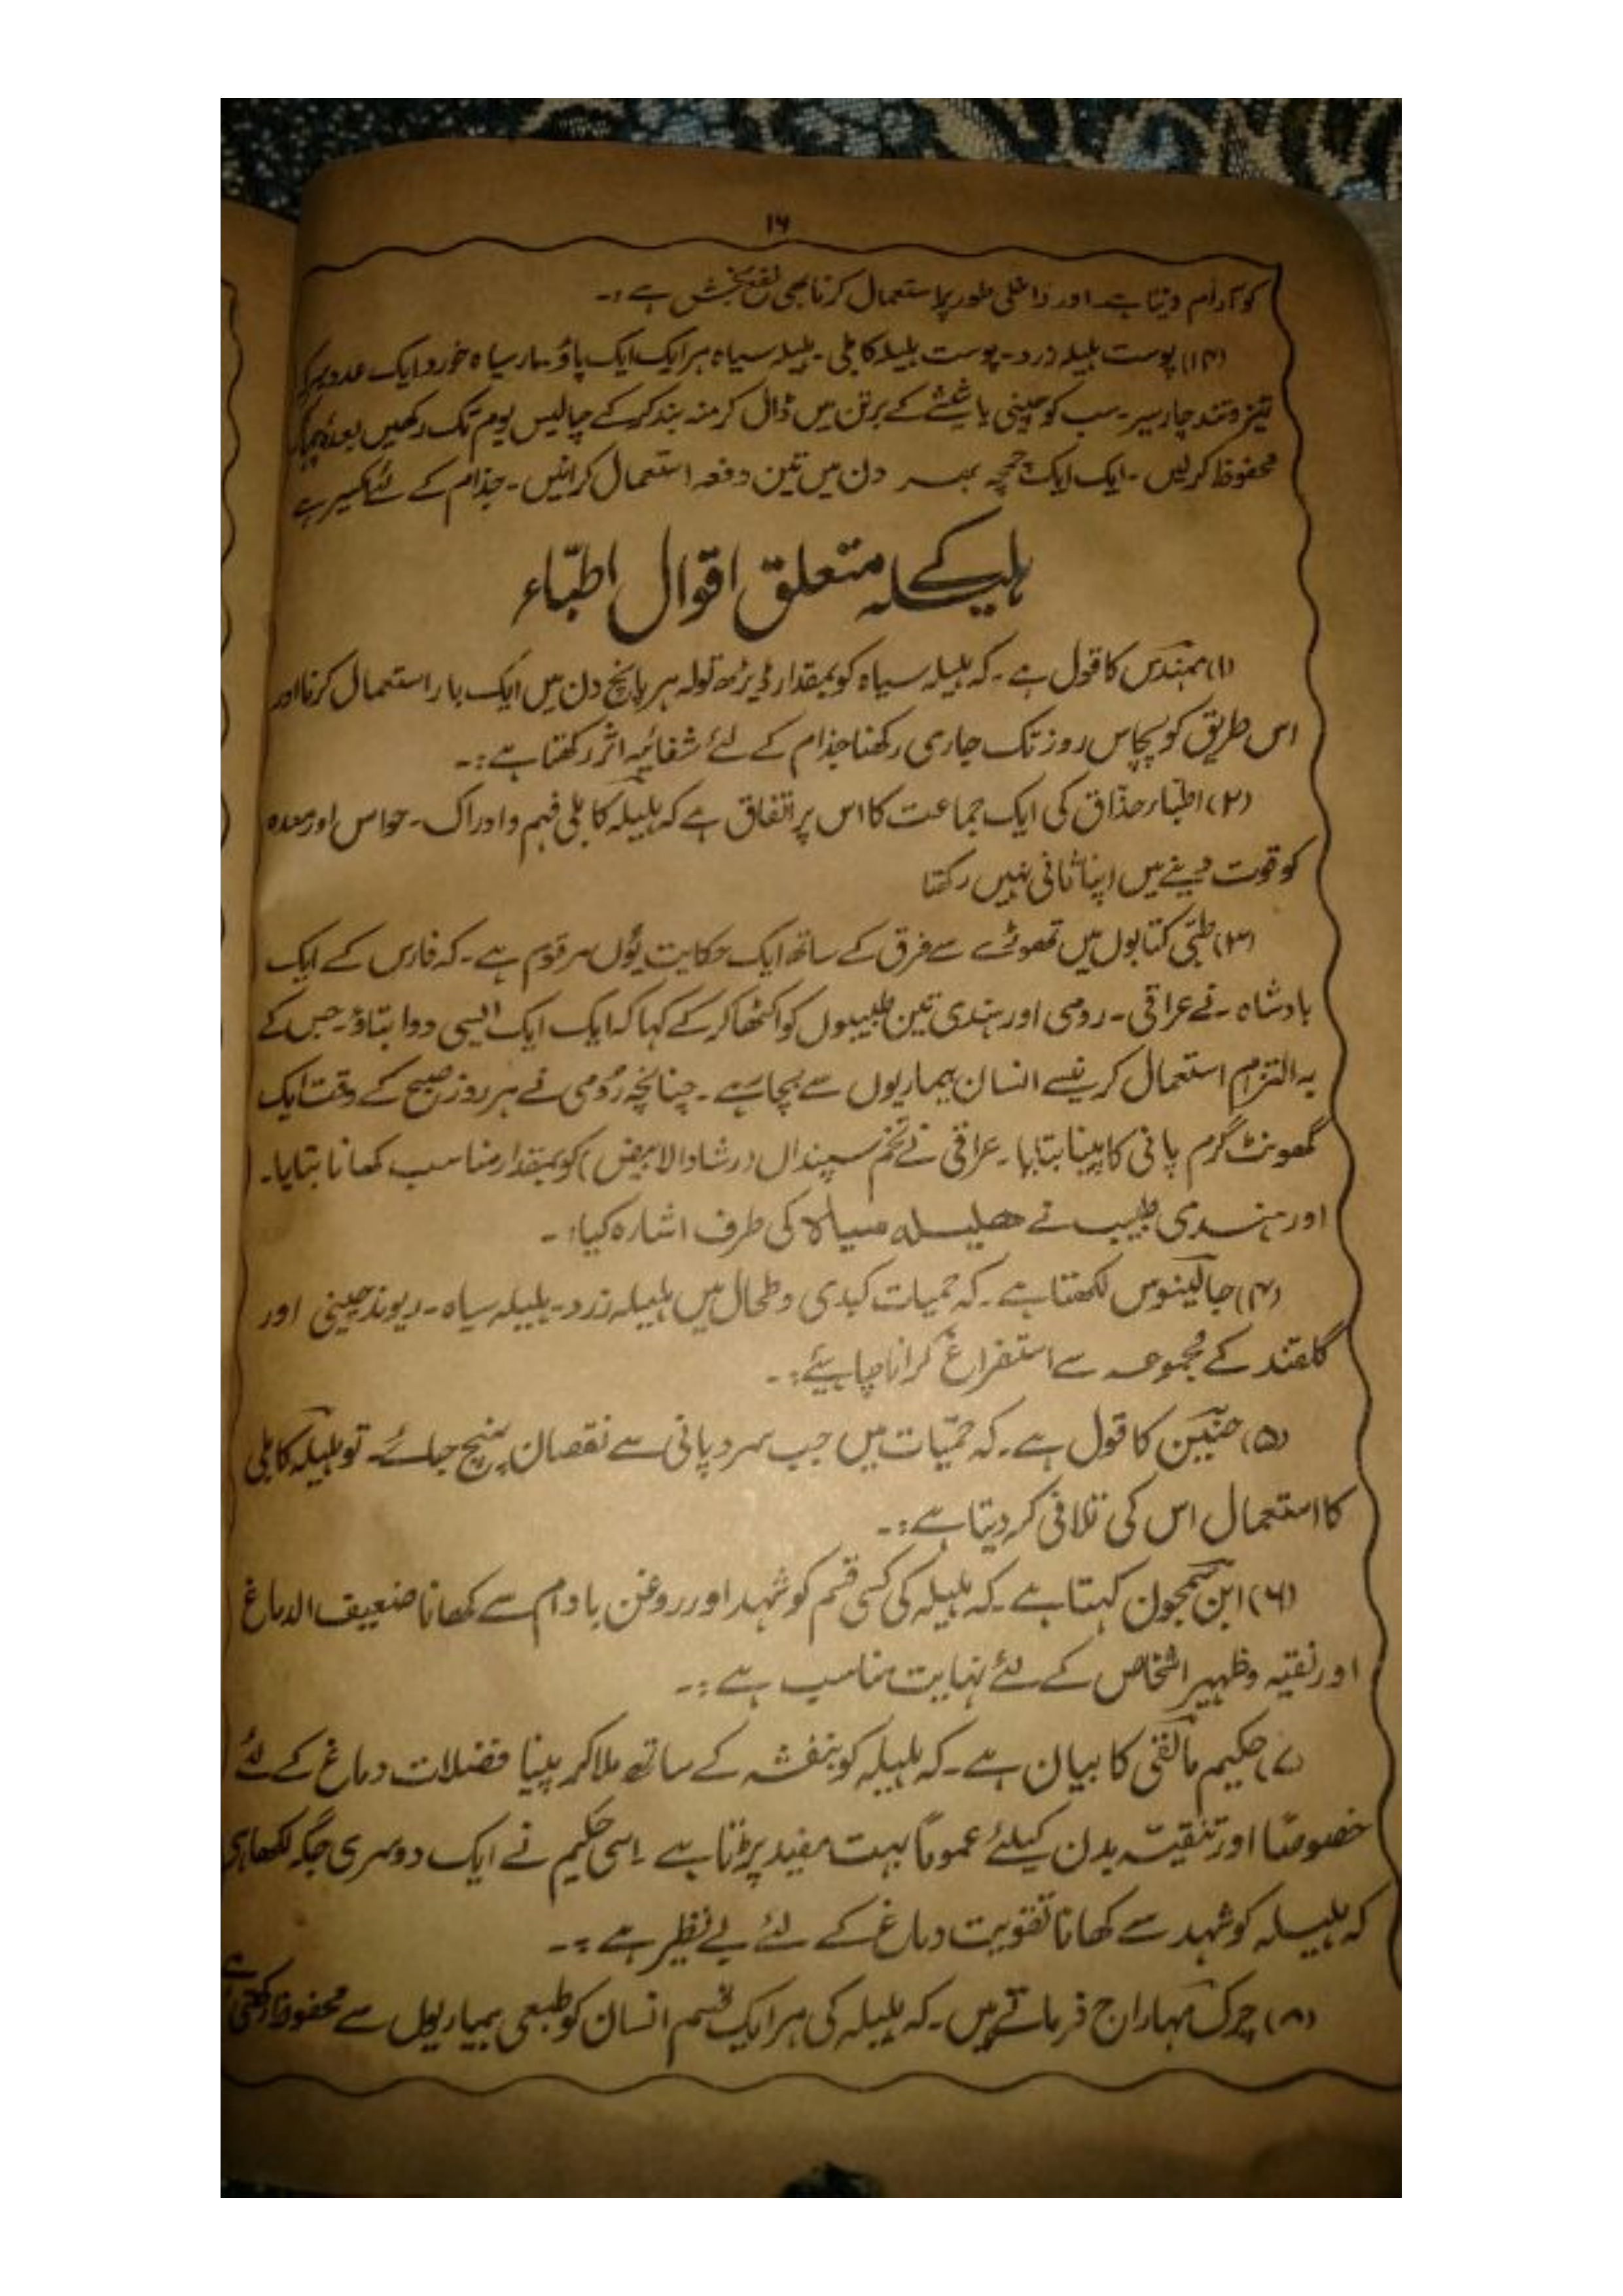 ۱۶
کو آرام دیتا ہے۔ اور داخلی طور پر استعمال کرنا بھی نفع بخش ہے :۔
(۱۴) پوست ہلیلہ زرد۔ پوست ہلیلہ کابلی۔ ہلیلہ سیاہ ہر ایک ایک پاؤ۔ مار سیاہ خورد ایک عدد سرکہ
تیز و تند چار سیر۔ سب کو چینی یا شیشے کے برتن میں ڈال کر منہ بند کر کے چالیس یوم تک رکھیں بعدہٗ
محفوظ کر لیں۔ ایک ایک چمچہ بھر دن میں تین دفعہ استعمال کرائیں۔ جذام کے لئے اکسیر ہے
ہلیلہ کے متعلق اقوال اطبّاء
(۱) مہندس کا قول ہے۔ کہ ہلیلہ سیاہ کو بمقدار ڈیڑھ تولہ ہر پانچ دن میں ایک بار استعمال کرنا اور
اس طریق کو پچاس روز تک جاری رکھنا جذام کے لئے شفائیہ اثر رکھتا ہے :۔
(۲) اطبّاء حذّاق کی ایک جماعت کا اس پر اتفاق ہے کہ ہلیلہ کابلی فہم و ادراک۔ حواس اور معدہ
کو قوت دینے میں اپنا ثانی نہیں رکھتا
(۳) طبّی کتابوں میں تھوڑے سے فرق کے ساتھ ایک حکایت یُوں مرقوم ہے۔ کہ فارس کے ایک
بادشاہ۔ نے عراقی۔ رومی اور ہندی تین طبیبوں کو اکٹھا کر کے کہا کہ ایک ایک ایسی دوا بتاؤ۔ جس کے
بہ التزام استعمال کرنیسے انسان بیماریوں سے بچا رہے۔ چنانچہ رُومی نے ہر روز صبح کے وقت ایک
گھونٹ گرم پانی کا پینا بتایا۔ عراقی نے تخم سپنداں (رشاد الابیض) کو بمقدار مناسب کھانا بتایا۔
اور ہندی طبیب نے ھلیلہ سیاہ کی طرف اشارہ کیا :۔
(۴) جالینوس لکھتا ہے۔ کہ حمیات کبدی و طحال میں ہلیلہ زرد۔ ہلیلہ سیاہ۔ ریوند چینی اور
گلقند کے مجموعہ سے استفراغ کرانا چاہیئے :۔
(۵) حنین کا قول ہے۔ کہ حمّیات میں جب سرد پانی سے نقصان پہنچ جائے۔ تو ہلیلہ کابلی
کا استعمال اس کی تلافی کر دیتا ہے :۔
(۶) ابن سمجون کہتا ہے۔ کہ ہلیلہ کی کسی قسم کو شہد اور روغن بادام سے کھانا ضعیف الدماغ
اور نقیہ و ظہیر اشخاص کے لئے نہایت مناسب ہے :۔
(۷) حکیم مالقی کا بیان ہے۔ کہ ہلیلہ کو بنفشہ کے ساتھ ملا کر پینا فضلات دماغ کے لئے
خصوصًا اور تنقیہ بدن کیلئے عمومًا بہت مفید پڑتا ہے۔ اسی حکیم نے ایک دوسری جگہ لکھا ہے
کہ ہلیلہ کو شہد سے کھانا تقویت دماغ کے لئے بے نظیر ہے :۔
(۸) چرک مہاراج فرماتے ہیں۔ کہ ہلیلہ کی ہر ایک قسم انسان کو طبعی بیماریوں سے محفوظ رکھتی ہے